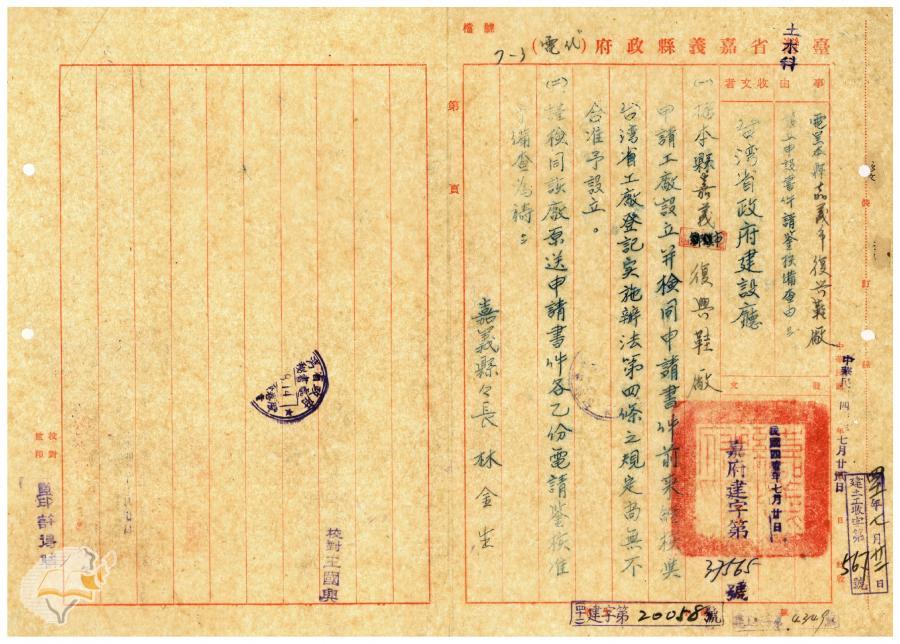 檔號
7-3
臺灣省嘉義縣政府(代電)
土木科
事由
受文者
電呈本縣嘉義市復兴鞋廠
設立申設書件請鑒核備查由
台湾省政府建設廳
(一)據本縣嘉義市復興鞋廠
申請工廠設立并檢同申請書件前來經核與
台湾省工廠登記实施辦法第四條之規定尚無不
合准予設立。
(二)謹檢同該廠原送申請書件各乙份電請鑒核准
予備查為禱
嘉義縣々長 林金生
民國四壹年七月廿日
嘉府建字第
37565
號
中華民
四
年七月廿
日
建土收字第
567號
建字第20058號
4349
第
頁
裝
訂
線
校對
監印
校對王國興
9.14